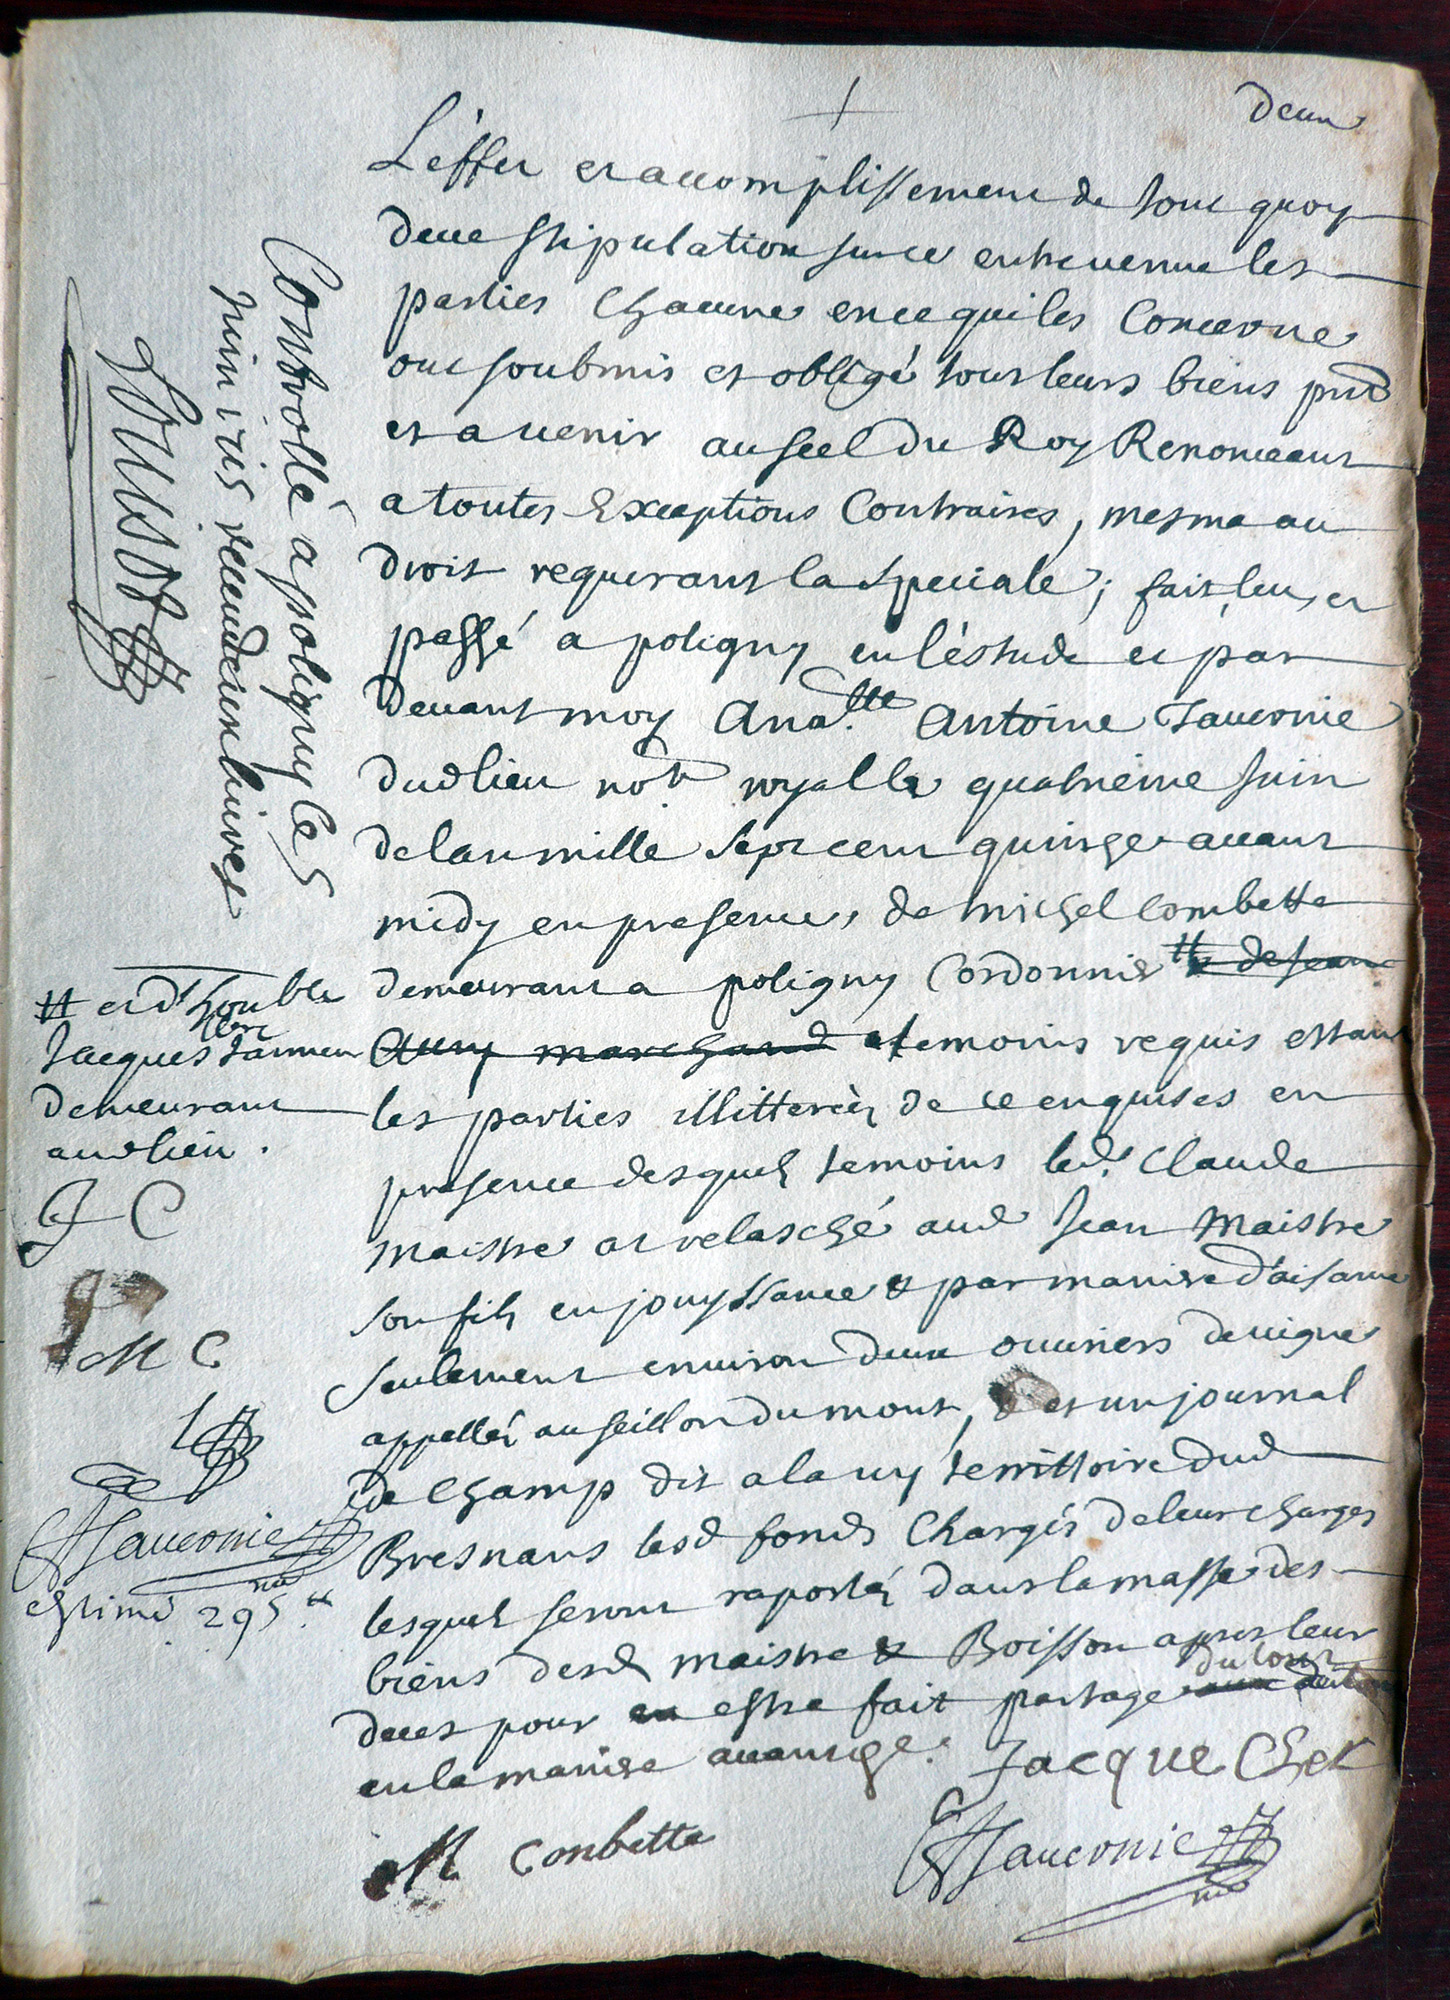 deux
L'effet et accomplissement de tout quoy
deue stipulation sur ce entrevenue les
parties chacune en ce qui les concerne
ont soubmis et obligé tous leurs biens pntz
et a venir au scel du Roy Renonceant
a toutes Exceptions Contraires, mesme au
droit requerant la speciale; fait, leu, et
passé a poligny en l'éstude et par
devant moy Ana.lle Antoine Jauconie
dud lieu notre royalle quatrieme Juin
de lan mille sept cent quinze avant
midy en presence, de michel combette
demeurant a poligny Cordonnier # de Jean
Cuny marchand et temoins requis estant
les parties illitterées de ce enquises en
presence desquels temoins led. Claude
maistre at relasché aud Jean Maistre
son fils en jouyssance & par maniere d'aisance
seulement environ deux ouvriers de vigne
appellés au seillon du mont, et un journal
de champ dit a la uy territtoire dud
Bresnans lesd fonds Chargés de leur charges
lesquels seront raportés dans la masse des
biens desd maistre & Boisson apres leur
deces pour en estre fait partage du tout
en la maniere avantdte. Jacque Clerc
M Conbette
AJauconie
nre
Controllé a poligny le 5
Juin 1715 receu deux livres
# et d'honble
Jacques Clerc Tanneur
demeurant
aud lieu.
J C
M C
AJauconie
nre
estimé 295 #